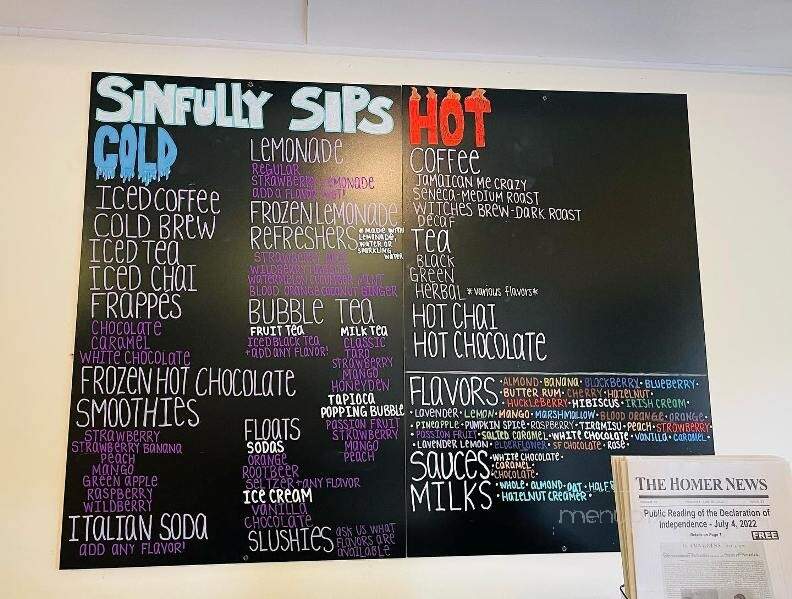 SINFULLY SIPS
COLD
ICED COFFEE
COLD BREW
ICED TEA
ICED CHAI
FRAPPÉS
CHOCOLATE
CARAMEL
WHITE CHOCOLATE
FROZEN HOT CHOCOLATE
SMOOTHIES
STRAWBERRY
STRAWBERRY BANANA
PEACH
MANGO
GREEN APPLE
RASPBERRY
WILDBERRY
ITALIAN SODA
ADD ANY FLAVOR!
LEMONADE
REGULAR
STRAWBERRY LEMONADE
ADD A FLAVOR
FROZEN LEMONADE
REFRESHERS
*MADE WITH
LEMONADE,
WATER OR
SPARKLING
WATER
STRAWBERRY
WILDBERRY
WATERMELON CUCUMBER MINT
BLOOD ORANGE COCONUT GINGER
BUBBLE TEA
FRUIT TEA
ICED BLACK TEA
+ADD ANY FLAVOR!
MILK TEA
CLASSIC
TARO
STRAWBERRY
MANGO
HONEYDEW
TAPIOCA
POPPING BUBBLE
PASSION FRUIT
STRAWBERRY
MANGO
PEACH
FLOATS
SODAS
ORANGE
ROOTBEER
SELTZER +ANY FLAVOR
ICE CREAM
VANILLA
CHOCOLATE
SLUSHIES
ASK US WHAT
FLAVORS ARE
AVAILABLE
HOT
COFFEE
JAMAICAN ME CRAZY
SENECA-MEDIUM ROAST
WITCHES BREW-DARK ROAST
DECAF
TEA
BLACK
GREEN
HERBAL *VARIOUS FLAVORS*
HOT CHAI
HOT CHOCOLATE
FLAVORS
•ALMOND•BANANA•BLACKBERRY•BLUEBERRY•
BUTTER RUM•CHERRY•HAZELNUT•
HUCKLEBERRY•HIBISCUS•IRISH CREAM•
LAVENDER•LEMON•MANGO•MARSHMALLOW•BLOOD ORANGE•ORANGE•
PINEAPPLE•PUMPKIN SPICE•RASPBERRY•TIRAMISU•PEACH•STRAWBERRY•
PASSION FRUIT•SALTED CARAMEL•WHITE CHOCOLATE•VANILLA•CARAMEL•
•LAVENDER LEMON•ELDERFLOWER•SF CHOCOLATE•ROSE•
SAUCES
•WHITE CHOCOLATE•
•CARAMEL•
•CHOCOLATE•
MILKS
•WHOLE•ALMOND•OAT•HALF
•HAZELNUT CREAMER•
THE HOMER NEWS
Public Reading of the Declaration of
Independence - July 4, 2022
Details on Page 7
FREE